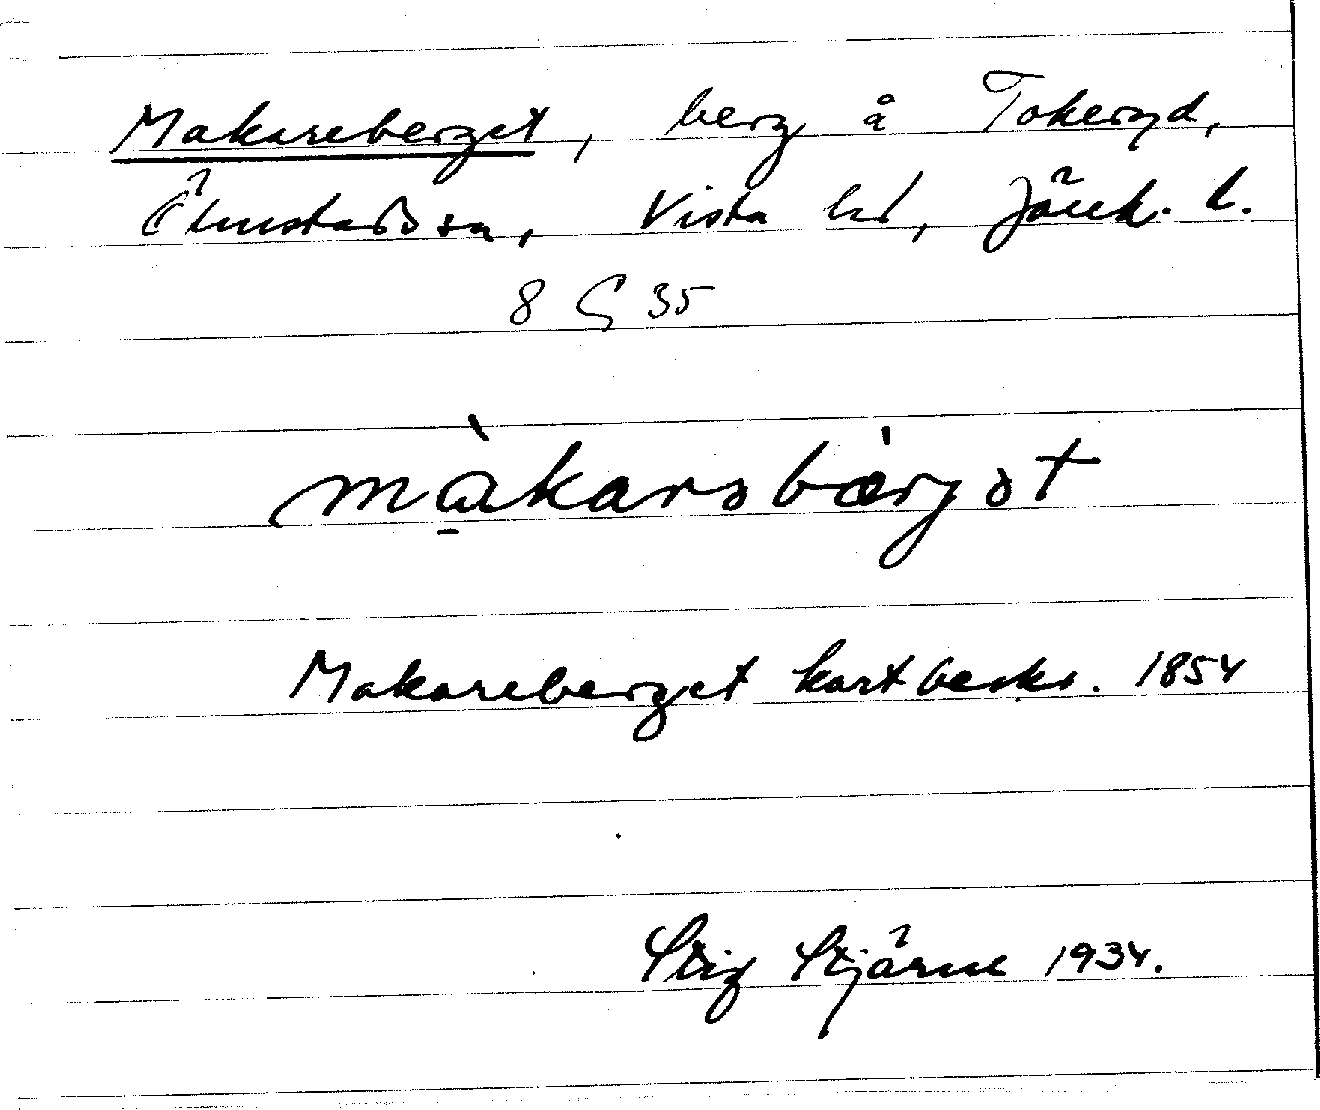 Makareberget, berg å Tokeryd,
Ölmstads sn, Vista hd, Jönk. l.
8 G 35
màkarəbærjət
Makareberget kartbeskr. 1854
Stig Stjärne 1934.